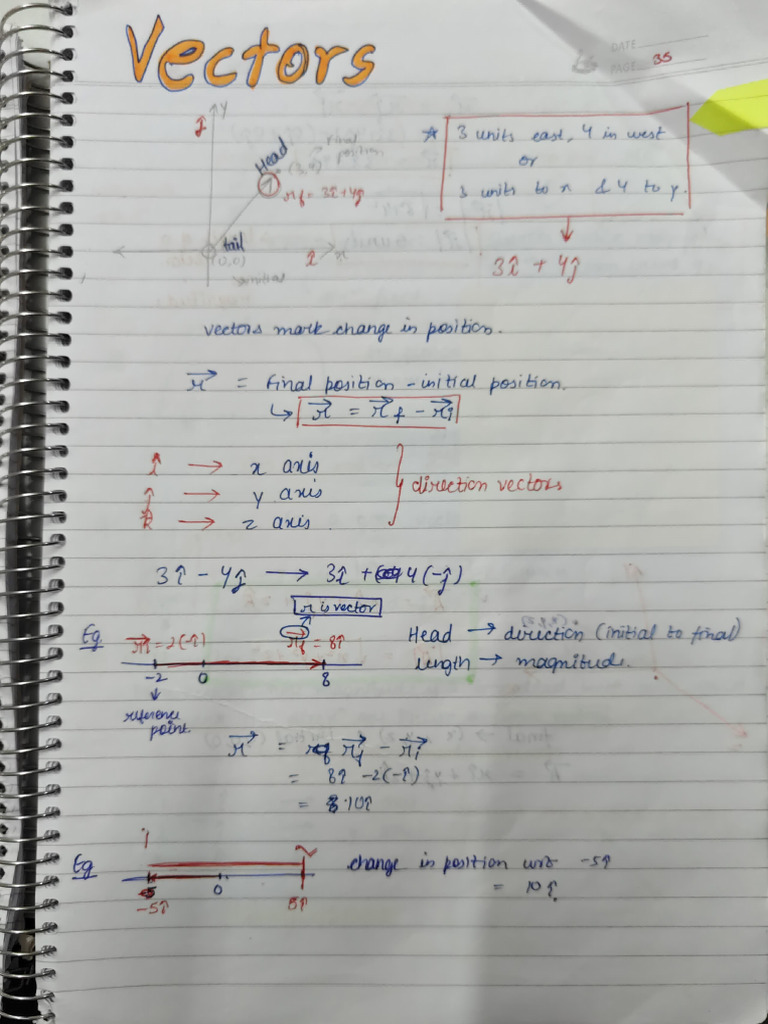 Vectors
DATE
PAGE 35
y
ĵ
Head
final position
(3,4)
r⃗f = 3î+4ĵ
tail
(0,0)
initial
î
x
* 3 units east, 4 in west
or
3 units to x & 4 to y.
3î + 4ĵ
vectors mark change in position.
r⃗ = final position - initial position.
↳ r⃗ = r⃗f - r⃗i
î → x axis
ĵ → y axis
k̂ → z axis
direction vectors
3î - 4ĵ → 3î + 4(-ĵ)
r is vector
Eg r⃗i = 2(-î) r⃗f = 8î
-2 0 8
reference point
Head → direction (initial to final)
length → magnitude.
r⃗ = r⃗f - r⃗i
= 8î -2(-î)
= 10î
Eg
i
-5î 0 8î
change in position wrt -5î
= 10î